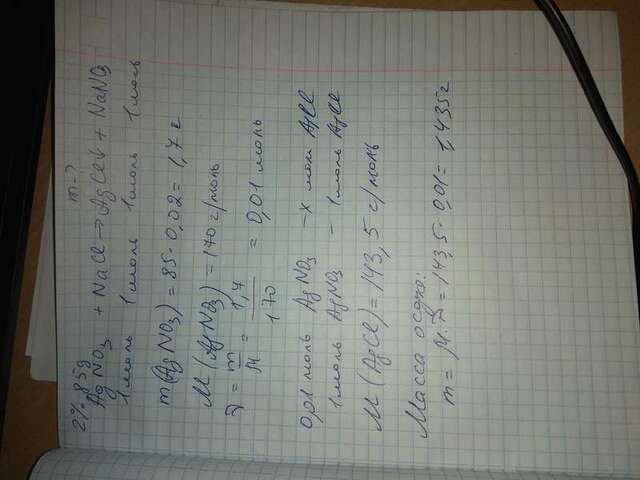 2% 85g m-?
AgNO3 + NaCl → AgCl↓ + NaNO3
1 моль 1 моль 1 моль 1 моль
m(AgNO3) = 85 · 0,02 = 1,7 г
M(AgNO3) = 170 г/моль
ν = m/M = 1,7/170 = 0,01 моль
0,01 моль AgNO3 – x моль AgCl
1 моль AgNO3 – 1 моль AgCl
M(AgCl) = 143,5 г/моль
Масса осадка:
m = M · ν = 143,5 · 0,01 = 1,435 г